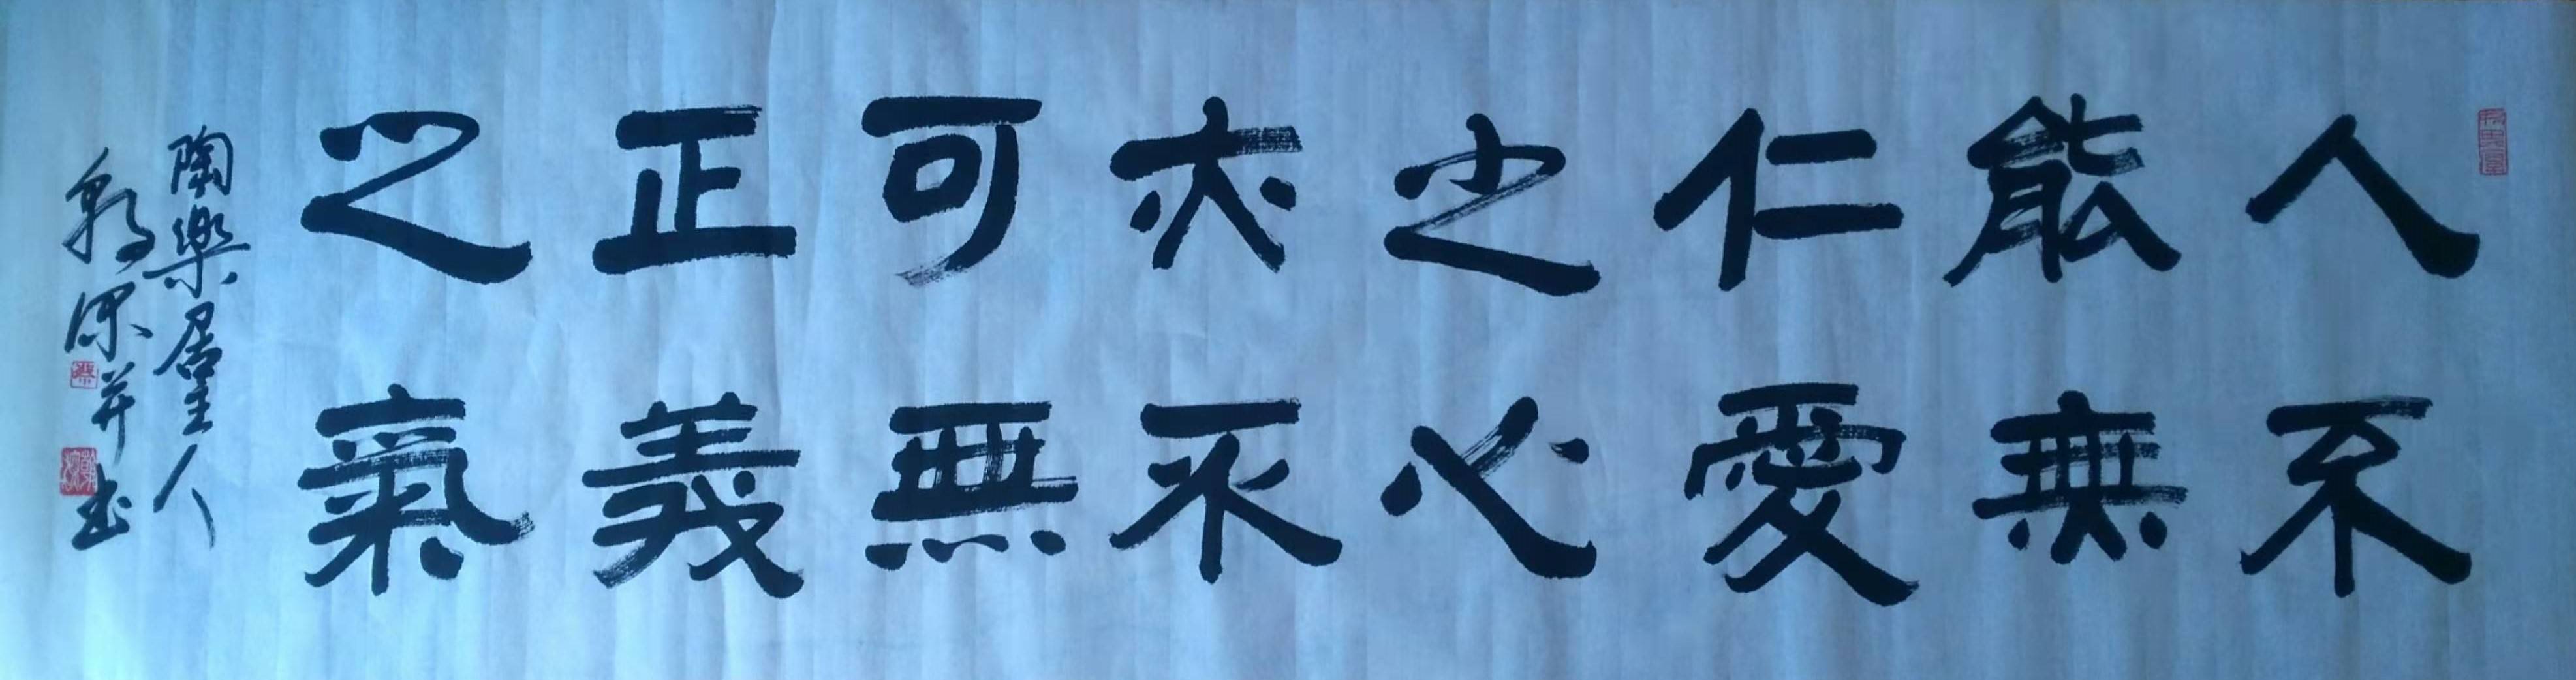 人不
能無
仁愛
之心
亦不
可無
正義
之氣
陶樂居主人
并书